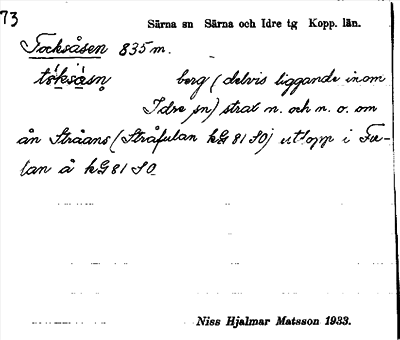 73
Särna sn Särna och Idre tg Kopp. län.
Tocksåsen 835 m.
berg (delvis liggande inom
Idre sn) strax n. och n. o. om
ån Stråans (Stråfulan kG 81 SO) utlopp i Fu-
lan å kG 81 SO
Niss Hjalmar Matsson 1933.